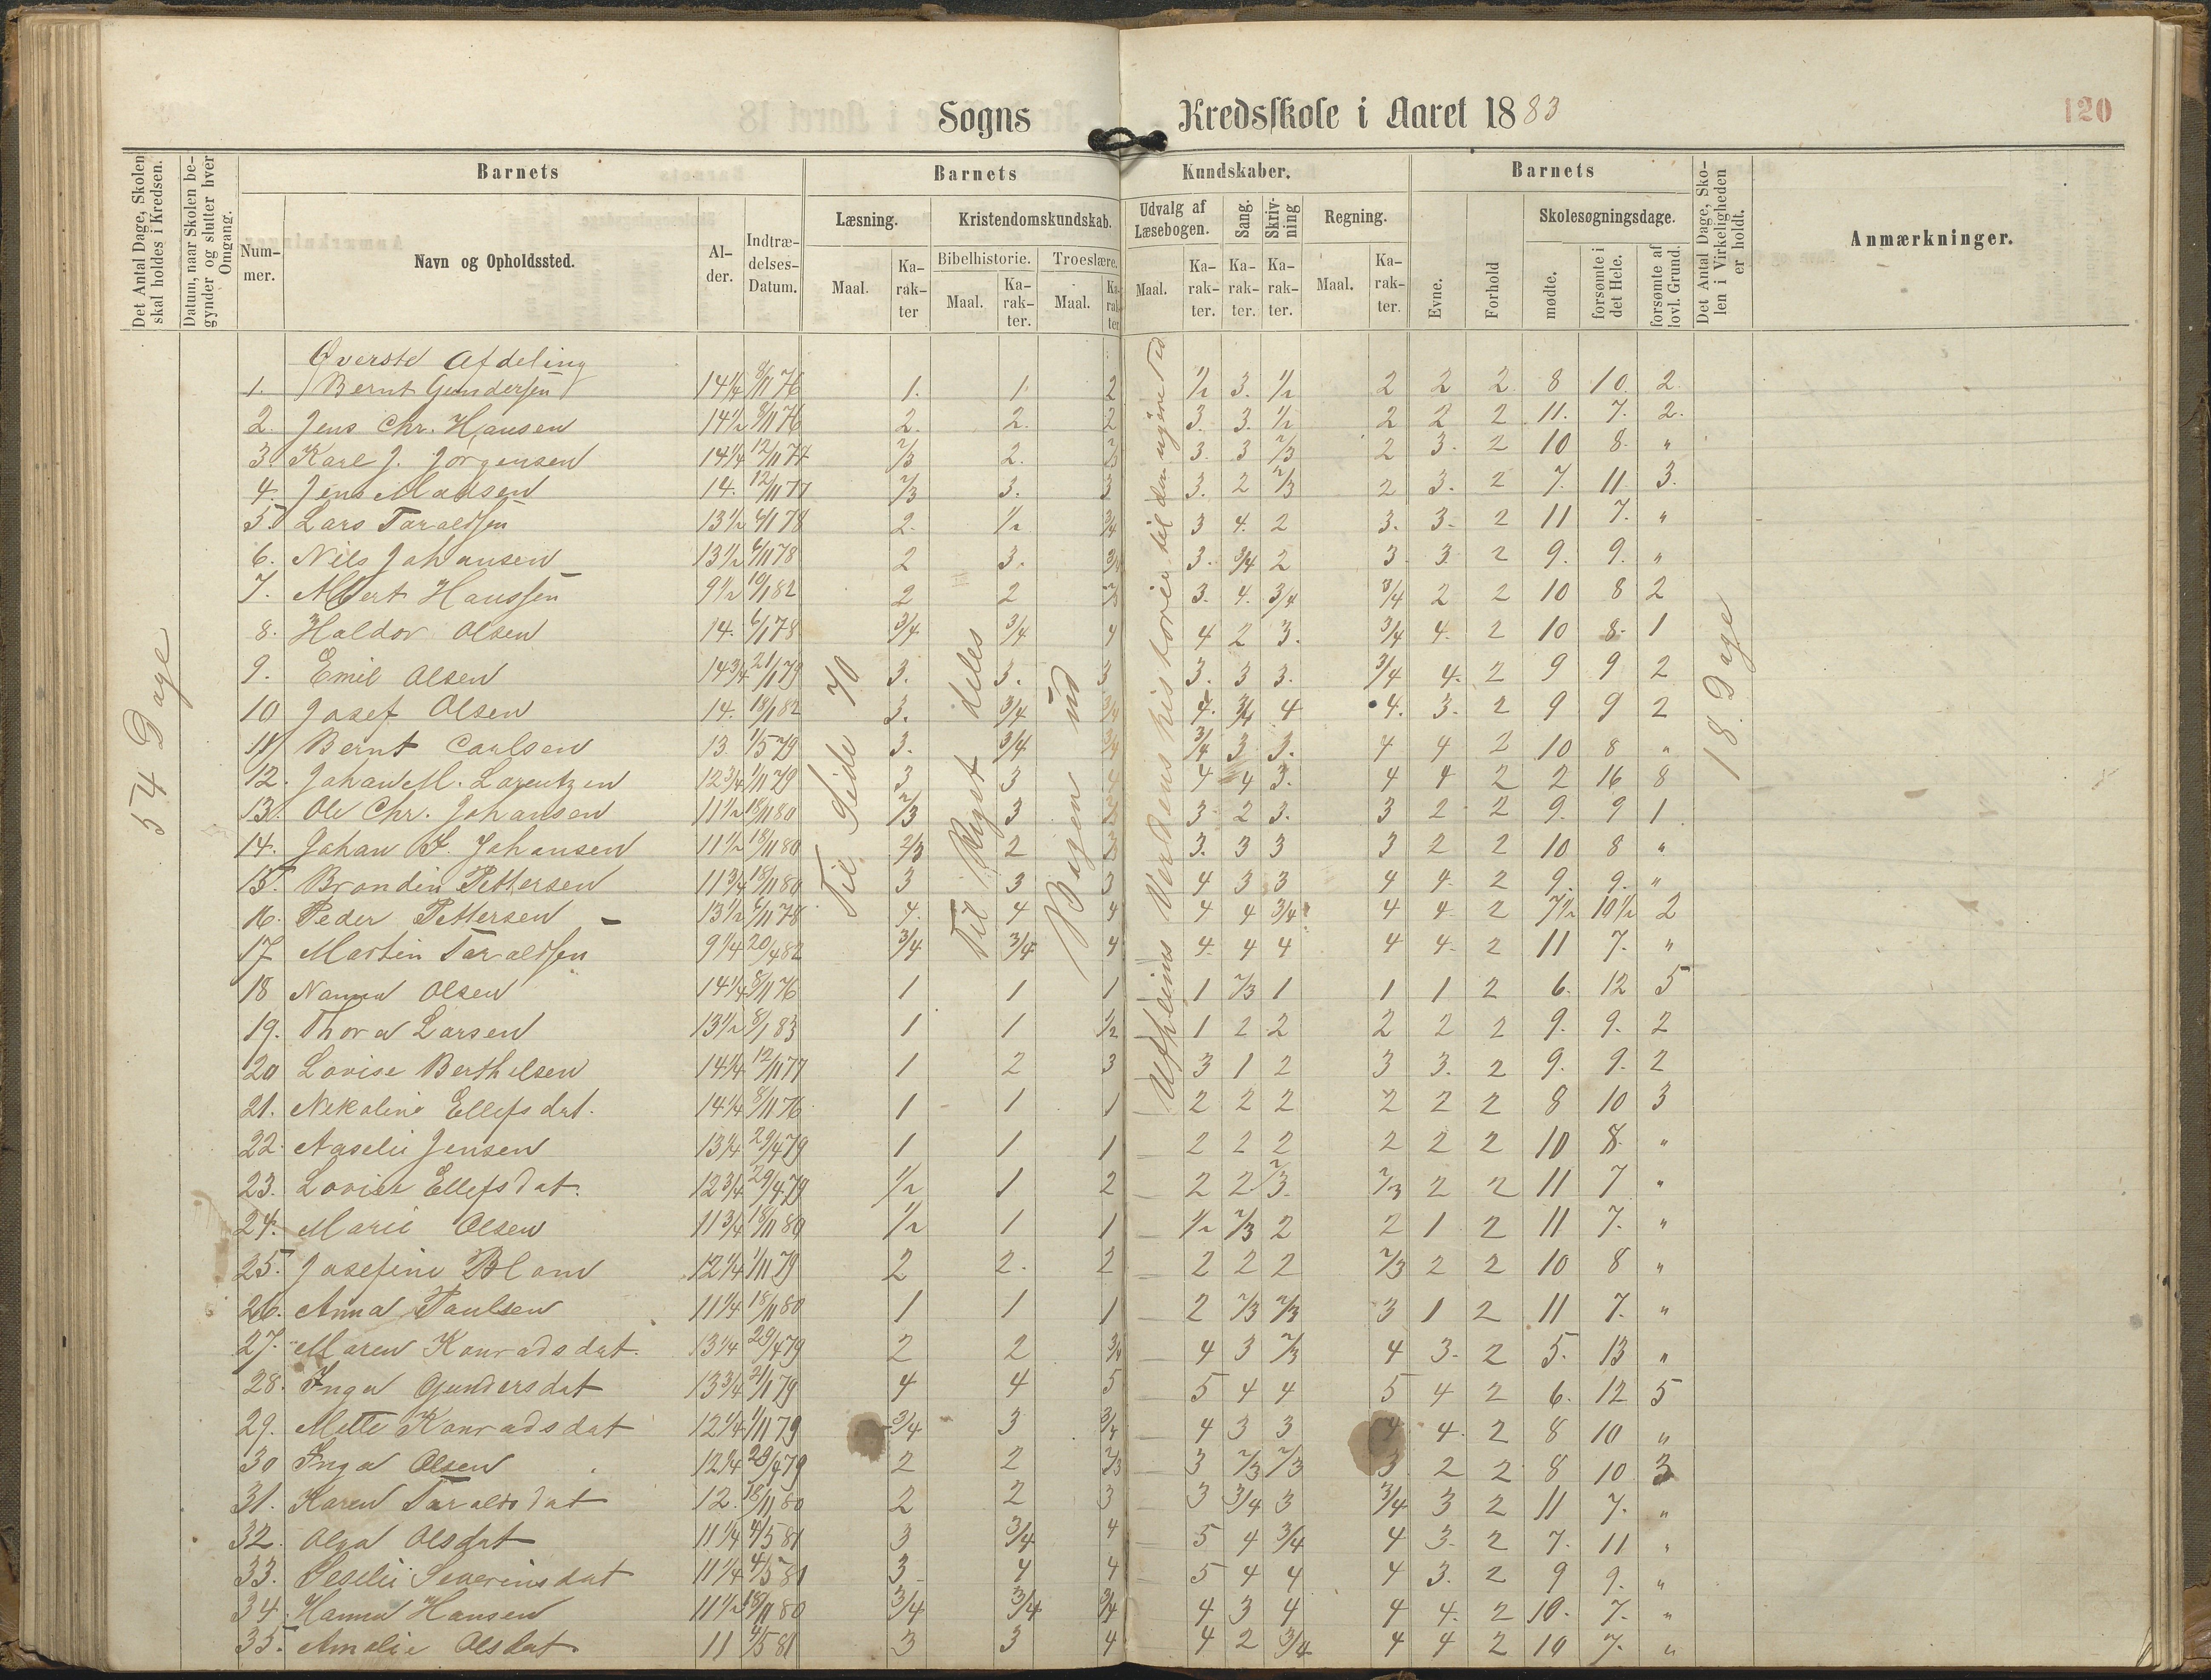 Sogns Kredsskole i Aaret 1883
120
Det Antal Dage, Skolen skal holdes i Kredsen.
Datum, naar Skolen begynder og slutter hver Omgang.
Barnets
Barnets Kundskaber.
Barnets
Det Antal Dage, Skolen i Virkeligheden er holdt.
Anmærkninger.
Nummer.
Navn og Opholdssted.
Alder.
Indtrædelses-Datum.
Læsning.
Kristendomskundskab.
Udvalg af Læsebogen.
Sang.
Skrivning
Regning.
Evne.
Forhold
Skolesøgningsdage.
Bibelhistorie.
Troeslære.
Maal.
Karakter
Maal.
Karakter.
Maal.
Karakter.
Maal.
Karakter.
Karakter.
Karakter.
Maal.
Karakter.
mødte.
forsømte i det Hele.
forsømte af lovl. Grund.
54 Dage
Til Side 70
Til Riget deles
Bogen ud
18 Dage
Øverste Afdeling
1. Bernt Gundersen 14 1/4 8/11 76 1. 1. 2 1/2 3. 1/2 2 2 2 8 10 2
2. Jens Chr. Hansen 14 1/2 8/11 76 2. 2. 2 3. 3. 1/2 2 2 2 11. 7. 2.
3. Karl J. Jørgensen 14 1/4 12/11 77 2/3 2. 3. 3 2/3 2 3. 2 10 8. "
4. Jens Madsen 14. 12/11 77 2/3 3. 3 3. 2 2/3 2 3. 2 7. 11. 3.
5. Lars Taraldsen 13 1/2 6/11 78 2. 1/2 3/4 3 4. 2 3. 3. 2 11 7. "
6. Nils Johansen 13 1/2 6/11 78 2 3. 3/4 3. 3/4 2 3 3 2 9. 9. "
7. Albert Hanssen 9 1/2 19/1 82 2 2 3. 4. 3/4 3/4 2 2 10 8 2
8. Haldor Olsen 14. 6/1 78 3/4 3/4 4 4 2 3. 3/4 4. 2 10 8. 1
9. Emil Olsen 14 3/4 21/1 79 3. 3. 3 3. 3 3. 3/4 4. 2 9 9 2
10 Josef Olsen 14. 18/1 82 3. 3/4 3/4 4. 3/4 4 4. 3. 2 9 9 2
11 Bernt Carlsen 13 1/5 79 3. 3/4 3/4 3/4 3 3. 4 4 2 10 8 "
12. Johan M. Lorentzen 12 3/4 1/11 79 3 3 4 4 4 3. 4 4 2 2 16 8
13. Ole Chr. Johansen 11 1/2 18/11 80 2/3 3 3 2 3. 3 2 2 9. 9 1
14. Johan F. Johansen 11 1/2 18/11 80 2/3 2 3. 3 3 3 2 2 10 8 "
15. Brondin Pettersen 11 3/4 18/11 80 3 3 3 4 3 3 4 4 2 9. 9. "
16. Peder Pettersen 13 1/2 6/11 78 4. 4 4 4 4 3/4 4 4 2 7 1/2 10 1/2 2
17 Martin Taraldsen 9 1/4 20/4 82 3/4 3/4 4 4. 4 4 4 4. 2 11 7. "
18 Nanna Olsen 14 1/4 8/11 76 1 1 1 1 2/3 1 1 1 2 6. 12 5
19. Thora Larsen 13 1/2 8/1 83 1 1 1/2 1 2 2 2 2 2 9. 9. 2
20 Lovise Berthelsen 14 1/4 12/11 77 1 2 3 3 1 2 3 3. 2 9. 9. 2
21. Nikoline Ellefsdat. 14 1/4 8/11 76 1 1 1 2 2 2 2 2 2 8 10 3
22. Aaselie Jensen 13 1/4 29/4 79 1 1 1 2 2 2 2 2 2 10 8. "
23. Lovise Ellefsdat. 12 3/4 29/4 79 1/2 1 2 2 2 2/3 2/3 2 2 11 7 "
24. Marie Olsen 11 3/4 18/11 80 1/2 1 1 1/2 2/3 2 2 1 2 11 7. "
25. Josefine Blom 12 1/4 1/11 79 2 2. 2 2 2 2 2/3 2 2 10 8 "
26. Anna Paulsen 11 1/4 18/11 80 1 1 1 2 2/3 2/3 3 1 2 11 7. "
27. Maren Konradsdat. 13 1/4 29/4 79 2 2 3/4 4 3 2/3 4 3. 2 5. 13 "
28. Inga Gundersdat 13 3/4 21/1 79 4 4 5 5 4 4 5 4 2 6. 12 5
29. Mette Konradsdat 12 1/4 1/11 79 3/4 3 3/4 4 3 3 4 4. 2 8 10 "
30 Inga Olsen 12 1/4 29/4 79 2 2 2/3 3 2/3 2/3 3. 2 2 8 10 3
31. Karen Taraldsdat 12. 18/11 80 2 2 3 3 3/4 3 3/4 3 2 11 7. "
32. Olga Olsdat 11 1/4 4/5 81 3 3/4 4 5 4 3/4 4 3. 2 7. 11 "
33. Seselie Severinsdat 11 1/4 4/5 81 3 4 4 5 4 4 4 3. 2 9 9. "
34. Hanna Hansen 11 1/2 18/11 80 3/4 3/4 3/4 4 3 4 4 4. 2 10. 7. "
35. Amalie Olsdat 11 4/5 81 3 3 4 4 2 3/4 4 4 2 10 7. "